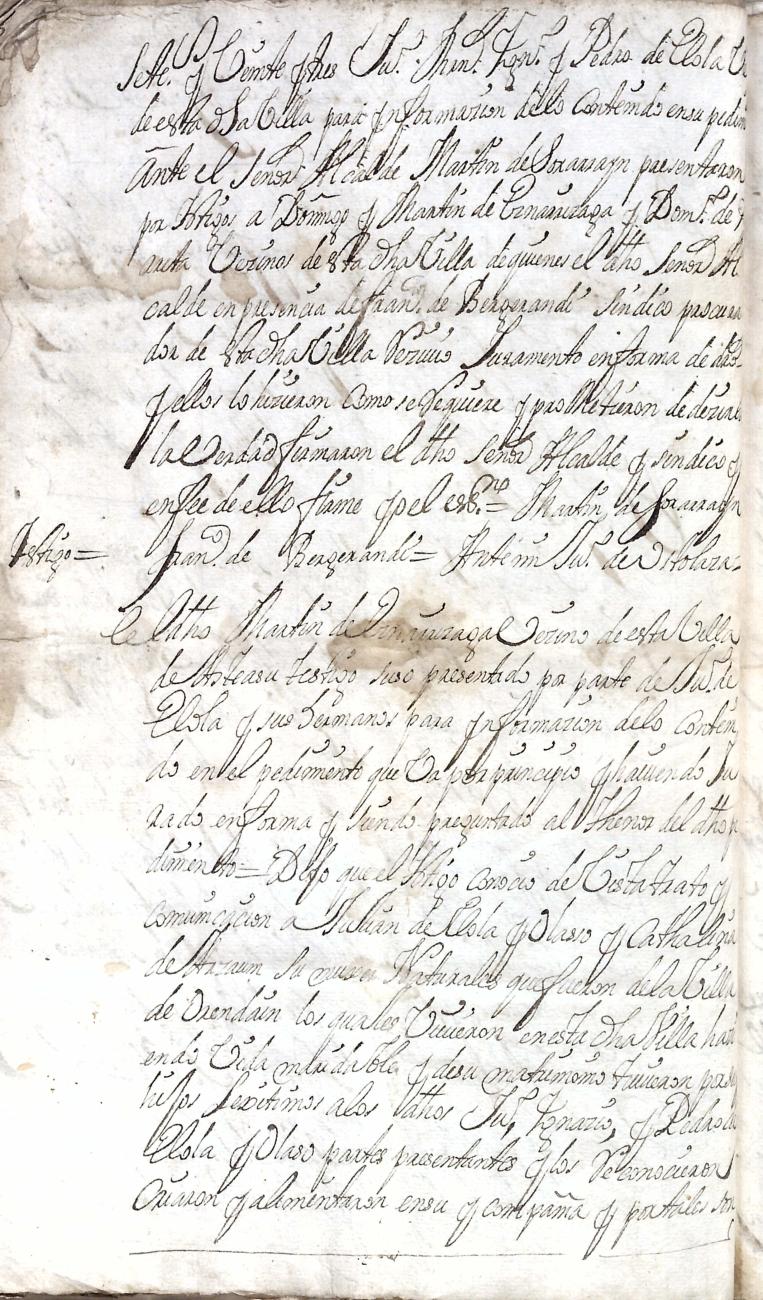 sete. y Veinte y tres Ju.º Ign.º y Pedro de Elola
de esta dha Villa para ynformazion delo Contenido en su pedim
Ante el señor Alcalde Martin de Sorarrayn presentaron
por testigos a Domingo y Martin de Eznarrizaga y Dom.º de
arieta Vezinos de esta dha Villa de quienes el dho señor Al
calde en presencia de Fran.co de Berzerandi sindico procura
dor de esta dha Villa Reziuio Juramento en forma de dro
y ellos lo hizieron como se Requiere y prometieron de dezir
la Verdad firmaron el dho señor Alcalde y sindico y
en fee de ello firme yo el esno = Martin de Sorarrayn
Testigo =
Fran.co de Berzerandi = Ante mi Ju.º de Ostolaza =
el dho Martin de Eznarrizaga Vezino de esta Villa
de Asteasu testigo suso presentado por parte de Ju.º de
Elola y sus hermanos para ynformazion delo Conteni
do en el pedimiento que Va por principio y hauiendo Ju
rado en forma y siendo preguntado al thenor del dho pe
dimiento = Dijo que el testigo conocio de Vista trato y
comunicacion a Julian de Elola y Olaso y Cathalina
de Arzaum su muger Naturales que fueron de la Villa
de Orendain los quales Viuieron en esta dha Villa hazi
endo Vida maridable y de su matrimonio tuuieron por sus
hijos lexitimos a los dhos Ju.º, Ygnazio, y Pedro de
Elola y Olaso partes presentantes y los Reconocieron
Criaron y alimentaron en su y compañia y por tales son